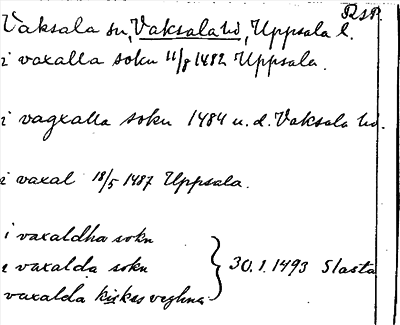 RSP.
Vaksala sn, Vaksala hd, Uppsala l.
i vaxalla soku 11/8 1482 Uppsala.
i vagxalla soku 1484 u. d. Vaksala hd.
i vaxal 18/5 1487 Uppsala.
i vaxaldha sokn
i vaxalda sokn } 30.1.1493 Slasta
vaxalda kirkes veghna